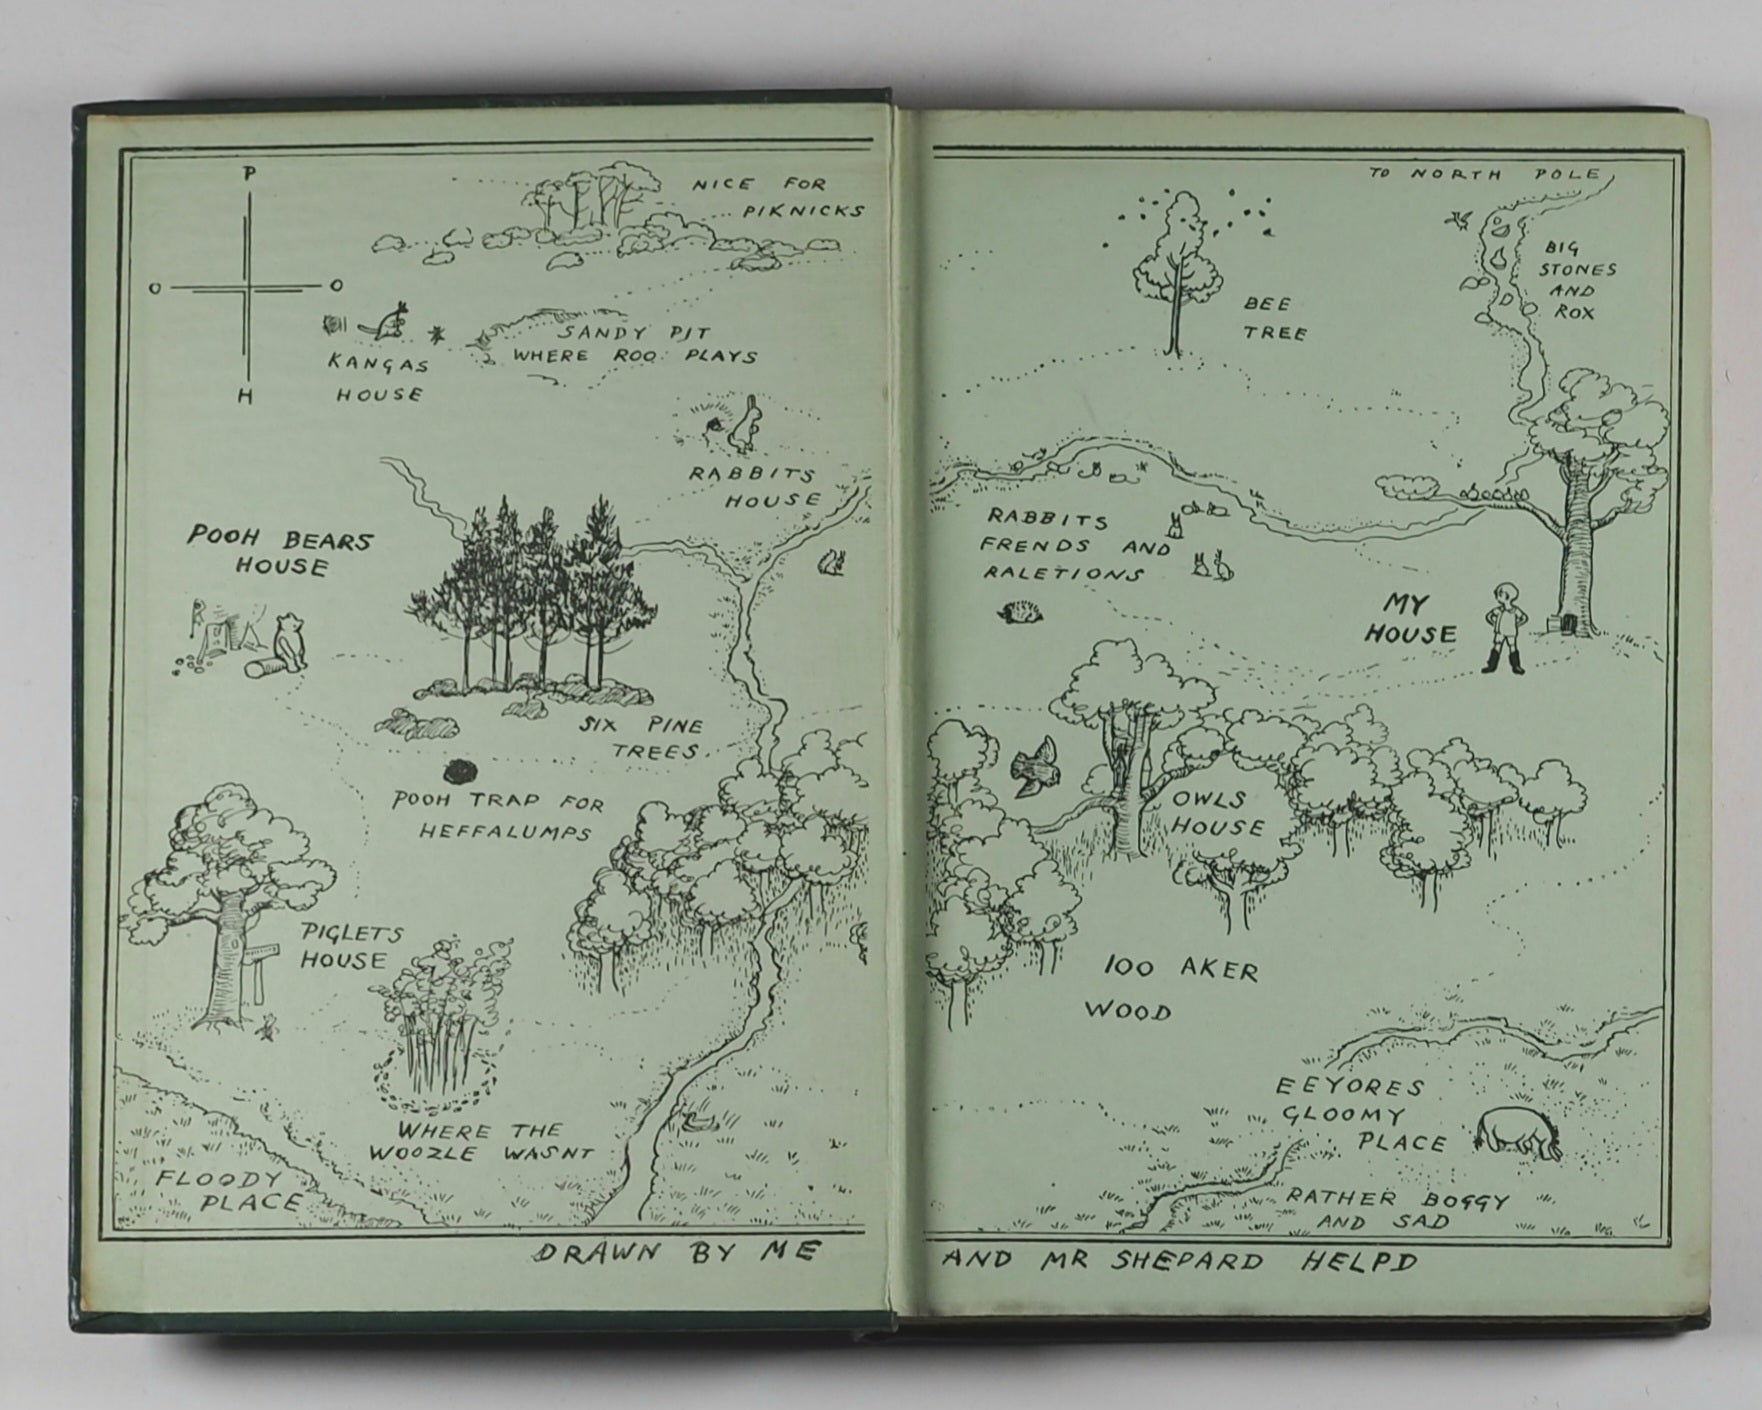 P
O O
H
NICE FOR
PIKNICKS
KANGAS
HOUSE
SANDY PIT
WHERE ROO PLAYS
RABBITS
HOUSE
POOH BEARS
HOUSE
SIX PINE
TREES.
POOH TRAP FOR
HEFFALUMPS
PIGLETS
HOUSE
WHERE THE
WOOZLE WASNT
FLOODY
PLACE
DRAWN BY ME
TO NORTH POLE
BIG
STONES
AND
ROX
BEE
TREE
RABBITS
FRENDS AND
RALETIONS
MY
HOUSE
OWLS
HOUSE
100 AKER
WOOD
EEYORES
GLOOMY
PLACE
RATHER BOGGY
AND SAD
AND MR SHEPARD HELPD